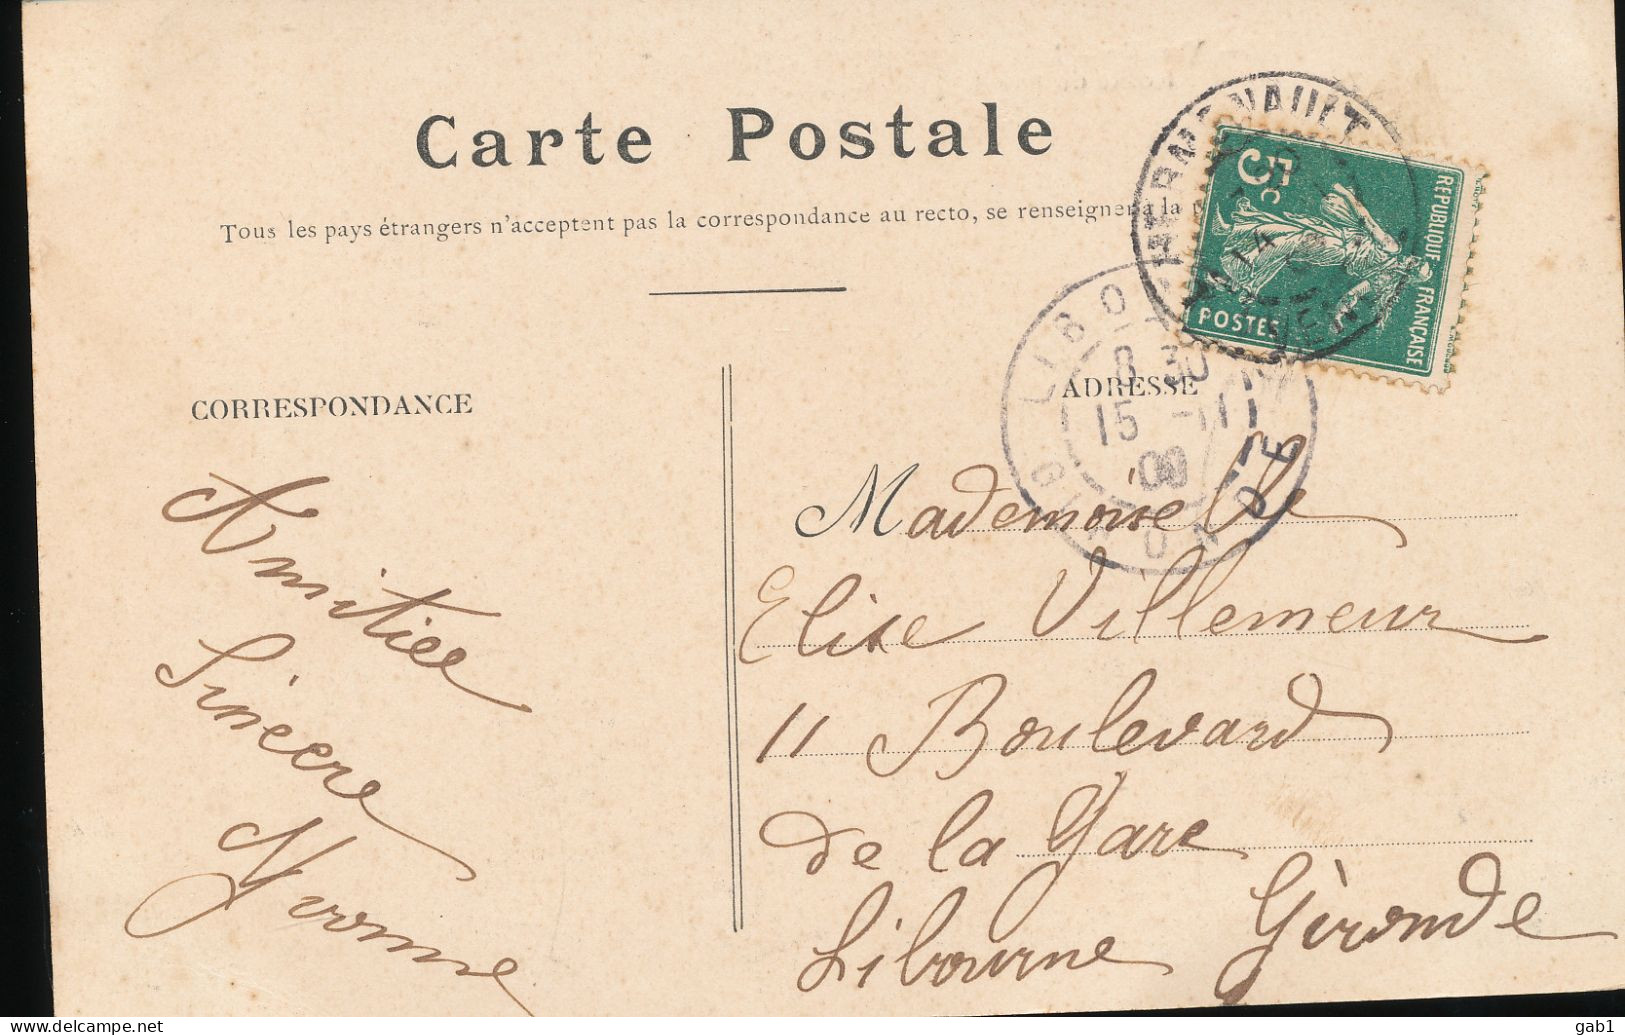 Carte Postale
Tous les pays étrangers n'acceptent pas la correspondance au recto, se renseigner à la
CORRESPONDANCE
ADRESSE
5c
REPUBLIQUE FRANÇAISE
POSTES
8 30
15 -11
09
GIRONDE
Amitiée
Sincère
Yvonne
Mademoiselle
Elise Villemeur
11 Boulevard
de la Gare
Libourne Gironde
delcampe.net
gab1